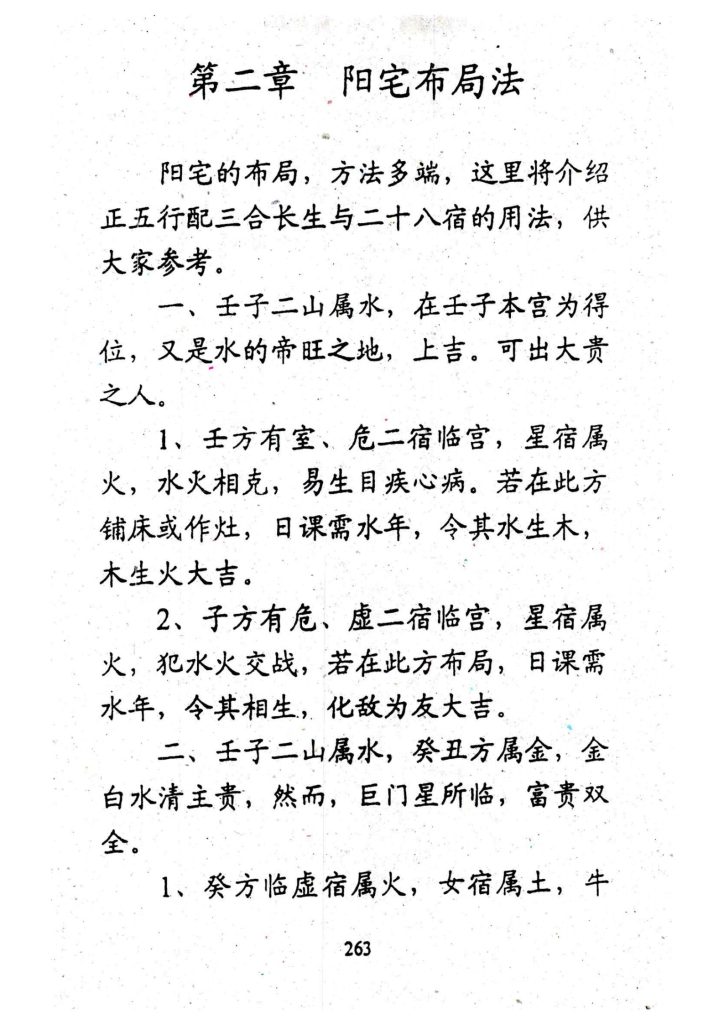 第二章 阳宅布局法
阳宅的布局，方法多端，这里将介绍
正五行配三合长生与二十八宿的用法，供
大家参考。
一、壬子二山属水，在壬子本宫为得
位，又是水的帝旺之地，上吉。可出大贵
之人。
1、壬方有室、危二宿临宫，星宿属
火，水火相克，易生目疾心病。若在此方
铺床或作灶，日课需水年，令其水生木，
木生火大吉。
2、子方有危、虚二宿临宫，星宿属
火，犯水火交战，若在此方布局，日课需
水年，令其相生，化敌为友大吉。
二、壬子二山属水，癸丑方属金，金
白水清主贵，然而，巨门星所临，富贵双
全。
1、癸方临虚宿属火，女宿属土，牛
263